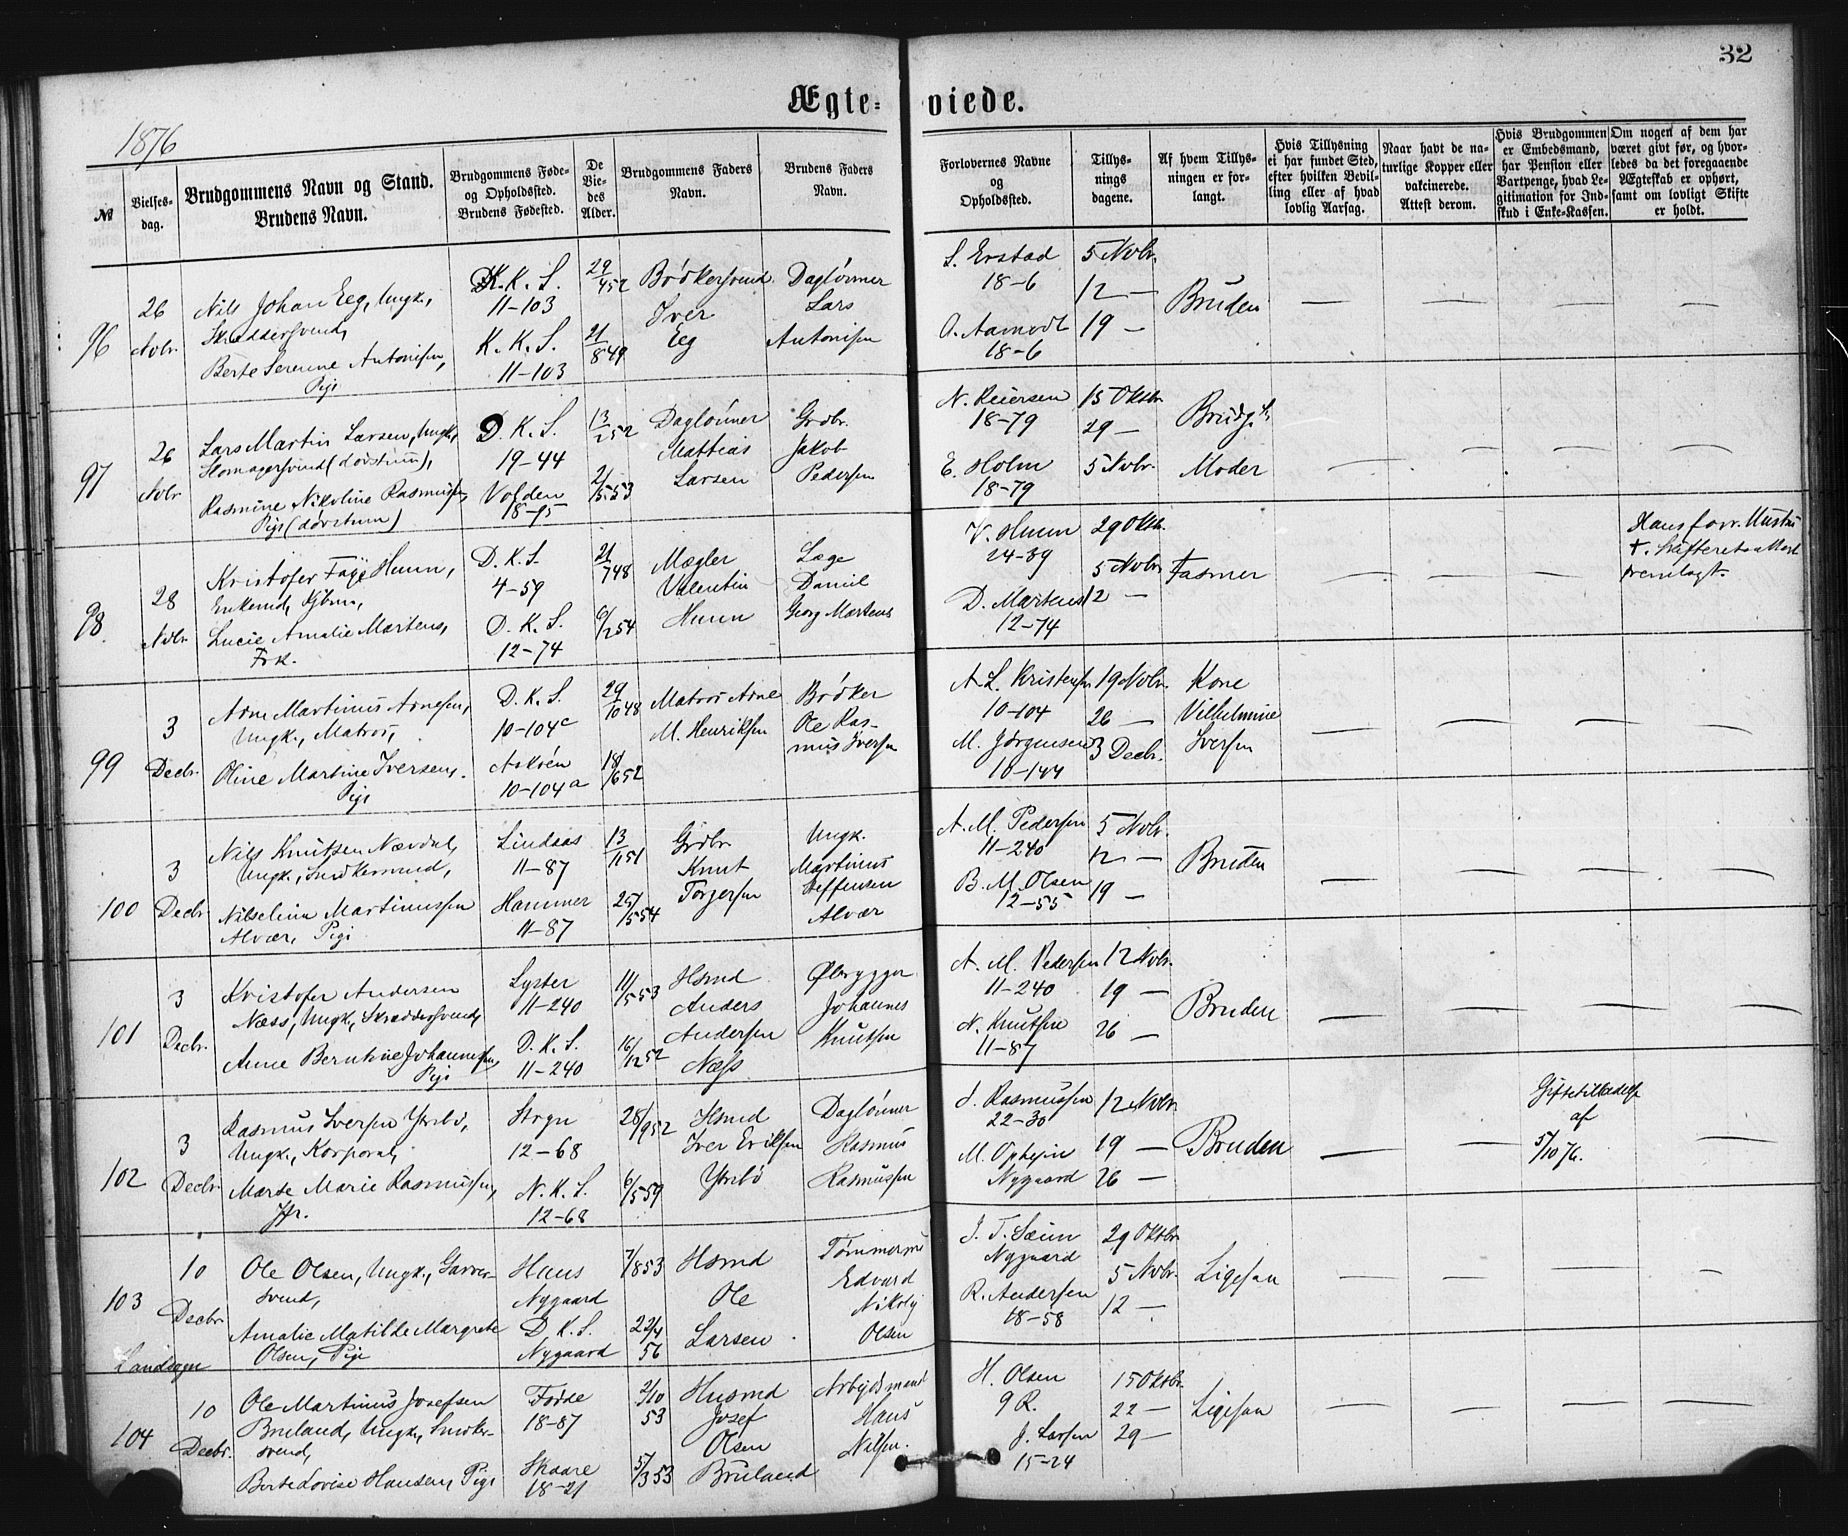 32
Ægte-viede.
1876
№
Vielses-
dag.
Brudgommens Navn og Stand.
Brudens Navn.
Brudgommens Føde-
og Opholdssted.
Brudens Fødested.
De
Vie-
des
Alder.
Brudgommens Faders
Navn.
Brudens Faders
Navn.
Forlovernes Navne
og
Opholdssted.
Tillys-
nings
dagene.
Af hvem Tillys-
ningen er for-
langt.
Hvis Tillysning
ei har fundet Sted,
efter hvilken Bevil-
ling eller af hvad
lovlig Aarsag.
Naar havt de na-
turlige Kopper eller
vakcinerede.
Attest derom.
Hvis Brudgommen
er Embedsmand,
har Pension eller
Vartpenge, hvad Le-
gitimation for Ind-
skud i Enke-Kassen.
Om nogen af dem har
været gift før, og hvor-
ledes da det foregaaende
Ægteskab er ophørt,
samt om lovligt Skifte
er holdt.
96
26
Novbr.
Nils Johan Eeg, Ungk.,
Skræddersvend,
Berte Serene Antonisen,
Pige
D.K.S.
11-103
K.K.S.
11-103
29/4 52
21/8 49
Bødkersvend
Iver
Eeg
Daglønner
Lars
Antonisen
S. Erstad
18-6
O. Aamodt
18-6
5 Novbr.
12 —
19 —
Bruden
97
26
Novbr.
Lars Martin Larsen, Ungk.,
Skomagersvend (døvstum),
Rasmine Nikoline Rasmussen,
Pige (døvstum)
D.K.S.
19-44
Volden
18-95
13/2 52
2/5 53
Daglønner
Mattias
Larsen
Grdbr.
Jakob
Pedersen
N. Reiersen
18-79
E. Holm
18-79
15 Oktbr.
29 —
5 Novbr.
Brudg.s
Moder
98.
28
Novbr.
Kristofer Faye Hunn,
Enkemd, Kjbm.,
Lucie Amalie Martens,
Frk.
D.K.S.
4-59
D.K.S.
12-74
21/7 48
6/2 54
Mægler
Valentin
Hunn
Læge
Daniel
Georg Martens
V. Hunn
24-89
D. Martens
12-74
29 Oktbr.
5 Novbr.
12 —
Fasmer
Hans forr. Hustru
†. Skifteretsattest
fremlagt.
99
3
Decbr.
Arne Martinus Arnesen,
Ungk., Matros,
Oline Martine Iversen,
Pige
D.K.S.
10-104c
Askvøen
10-104a
29/10 48
18/6 52
Matros Arne
M. Henriksen
Bødker
Ole Ras-
mus Iversen
A. L. Kristensen
10-104
M. Jørgensen
10-144
19 Novbr.
26 —
3 Decbr.
Kone
Vilhelmine
Iversen
100
3
Decbr.
Nils Knutsen Nævdal,
Ungk., Snedkersvend,
Nilselina Martinussen
Alvær, Pige
Lindaas
11-87
Hammer
11-87
13/11 51
25/5 54
Grdbr.
Knut
Torgersen
Ungk.
Martinus
Steffensen
Alvær
A. M. Pedersen
11-240
B. M. Olsen
12-55
5 Novbr.
12 —
19 —
Bruden
101
3
Decbr.
Kristofer Andersen
Næss, Ungk., Skræddersvend,
Anne Berntine Johannesen,
Pige
Lyster
11-240
D.K.S.
11-240
11/5 53
16/12 52
Hsmd
Anders
Andersen
Næss
Ølbrygger
Johannes
Knutsen
A. M. Pedersen
11-240
N. Knutsen
11-87
12 Novbr.
19 —
26 —
Bruden
102
3
Decbr.
Rasmus Iversen Ytrebø,
Ungk., Korporal,
Marte Marie Rasmussen,
Jfr.
Stryn
12-68
N.K.S.
12-68
28/9 52
6/5 59
Hsmd
Iver Eriksen
Ytrebø
Daglønner
Rasmus
Rasmussen
J. Rasmussen
22-30
M. Opheim
Nygaard
12 Novbr.
19 —
26 —
Bruden
Giftetilladelse
af
5/10 76.
103
Landsogn
10
Decbr.
Ole Olsen, Ungk., Garver-
svend,
Amalie Matilde Margrete
Olsen, Pige
Haus
Nygaard
D.K.S.
Nygaard
7/8 53
22/4
56
Hsmd
Ole
Larsen
Tømmermd
Edvard
Nikolaj
Olsen
J. T. Sæim
Nygaard
R. Andersen
18-58
29 Oktbr.
5 Novbr.
12 —
Ligesaa
104
10
Decbr.
Ole Martinus Josefsen
Bruland, Ungk., Snedker-
svend,
Berte Lovise Hansen, Pige
Førde
18-87
Skaare
18-21
2/10
53
5/3 53
Husmd
Josef
Olsen
Bruland
Arbejdsmand
Hans
Nilsen.
H. Olsen
9 R.
J. Larsen
15-24
15 Oktbr.
22 —
29 —
Ligesaa